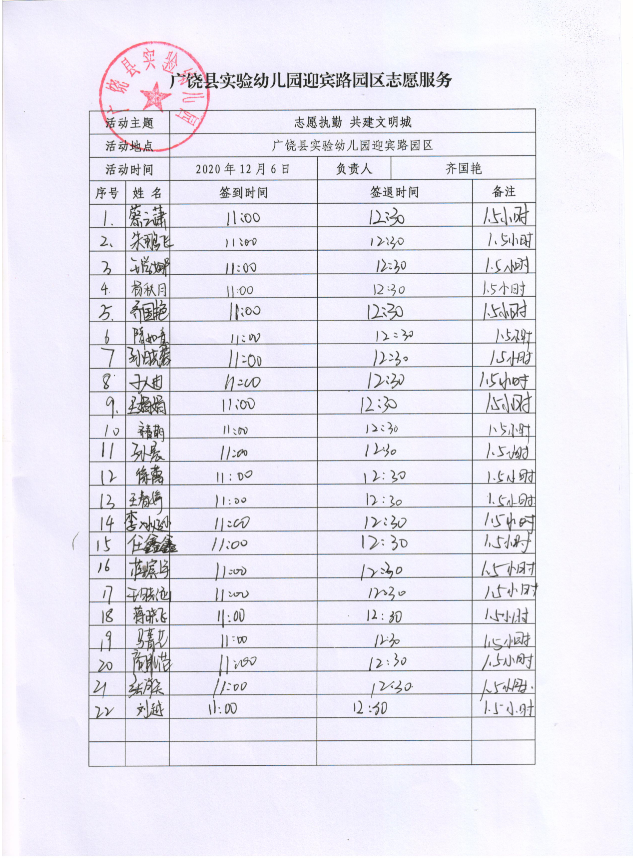 广饶县实验幼儿园
广饶县实验幼儿园迎宾路园区志愿服务
活动主题 志愿执勤 共建文明城
活动地点 广饶县实验幼儿园迎宾路园区
活动时间 2020年12月6日 负责人 齐国艳
序号 姓名 签到时间 签退时间 备注
1. 11:00 12:30 1.5小时
2. 朱鹏飞 11:00 12:30 1.5小时
3 11:00 12:30 1.5小时
4. 杨秋月 11:00 12:30 1.5小时
5. 齐国艳 11:00 12:30 1.5小时
6 11:00 12:30 1.5小时
7 11:00 12:30 1.5小时
8 11:00 12:30 1.5小时
9. 王娟娟 11:00 12:30 1.5小时
10 11:00 12:30 1.5小时
11 11:00 1230 1.5小时
12 11:00 12:30 1.5小时
13 11:00 12:30 1.5小时
14 11:00 12:30 1.5小时
15 任鑫鑫 11:00 12:30 1.5小时
16 11:00 12:30 1.5小时
17 11:00 12:30 1.5小时
18 蒋晓飞 11:00 12:30 1.5小时
19 11:00 12:30 1.5小时
20 11:00 12:30 1.5小时
21 11:00 12:30 1.5小时.
22 刘越 11:00 12:30 1.5小时